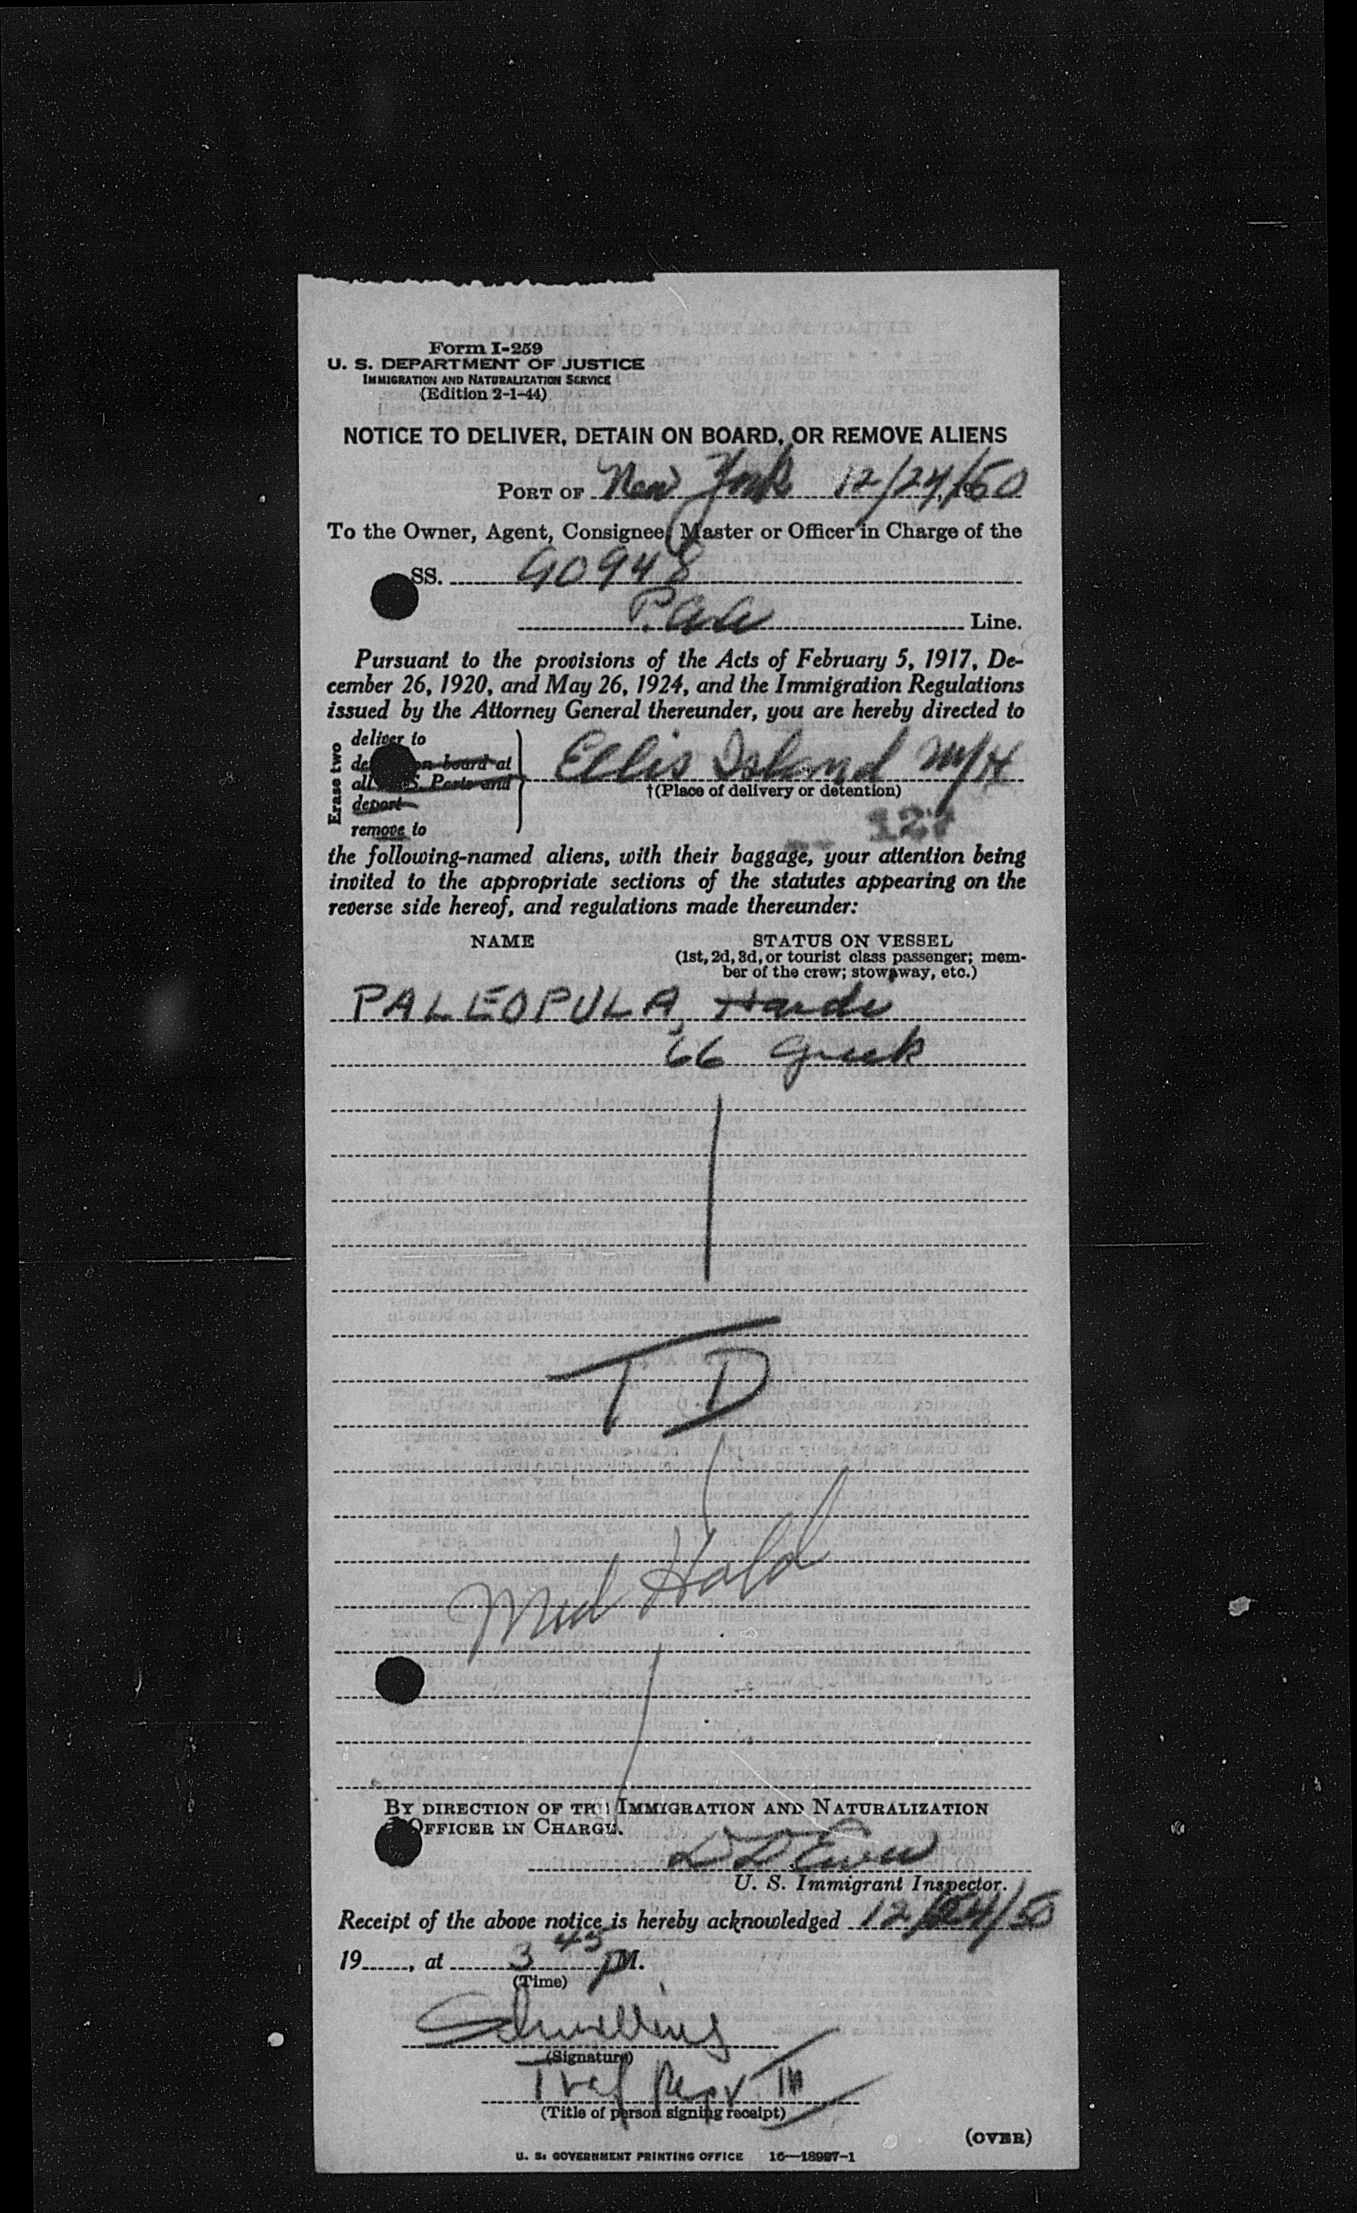 Form I-259
U. S. DEPARTMENT OF JUSTICE
IMMIGRATION AND NATURALIZATION SERVICE
(Edition 2-1-44)
NOTICE TO DELIVER, DETAIN ON BOARD, OR REMOVE ALIENS
PORT OF New York 12/24/50
To the Owner, Agent, Consignee, Master or Officer in Charge of the
SS. 90948
P.AA Line.
Pursuant to the provisions of the Acts of February 5, 1917, De-
cember 26, 1920, and May 26, 1924, and the Immigration Regulations
issued by the Attorney General thereunder, you are hereby directed to
Erase two
deliver to
on board at
all S. Ports and
deport
remove to
Ellis Island M/H
†(Place of delivery or detention)
the following-named aliens, with their baggage, your attention being
invited to the appropriate sections of the statutes appearing on the
reverse side hereof, and regulations made thereunder:
NAME STATUS ON VESSEL
(1st, 2d, 3d, or tourist class passenger; mem-
ber of the crew; stowaway, etc.)
PALEOPULA,
66 Greek
TD
Med Hold
BY DIRECTION OF THE IMMIGRATION AND NATURALIZATION
OFFICER IN CHARGE.
U. S. Immigrant Inspector.
Receipt of the above notice is hereby acknowledged 12/24/50
19......, at 3 45 PM.
(Time)
(Signature)
(Title of person signing receipt)
(OVER)
U. S. GOVERNMENT PRINTING OFFICE 16—18997-1